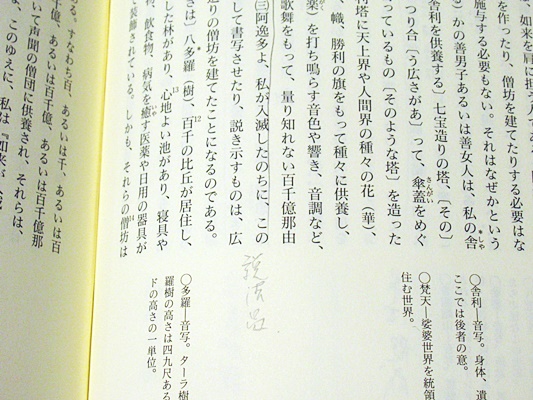 、如来を肩に担う人であ
を作ったり、僧坊を建てたりする必要はな
施与する必要もない。それはなぜかという
）かの善男子あるいは善女人は、私の舎
舎利を供養する〕七宝造りの塔、〔その〕
つり合〔う広さがあ〕って、傘蓋をめぐ
っているもの〔そのような塔〕を造った
塔に天上界や人間界の種々の花（華）、
、幟、勝利の旗をもって種々に供養し、
楽）を打ち鳴らす音色や響き、音調など、
歌舞をもって、量り知れない百千億那由
阿逸多よ、私が入滅したのちに、この
して書写させたり、説き示すものは、広
造りの僧坊を建てたことになるのである。
さは〕八多羅〔樹〕、百千の比丘が居住し、
した林があり、心地よい池があり、寝具や
物、飲食物、病気を癒す医薬や日用の器具が
て装飾されている。しかも、それらの僧坊は
ある。すなわち百、あるいは千、あるいは百
千億、あるいは百千億、あるいは百千億那
いて声聞の僧団に供養され、それらは、
。このゆえに、私は『如来が
〇舎利―音写。身体、遺
ここでは後者の意。
〇梵天―娑婆世界を統領
住む世界。
説法品
〇多羅―音写。ターラ樹
羅樹の高さは四九尺ある
ドの高さの一単位。